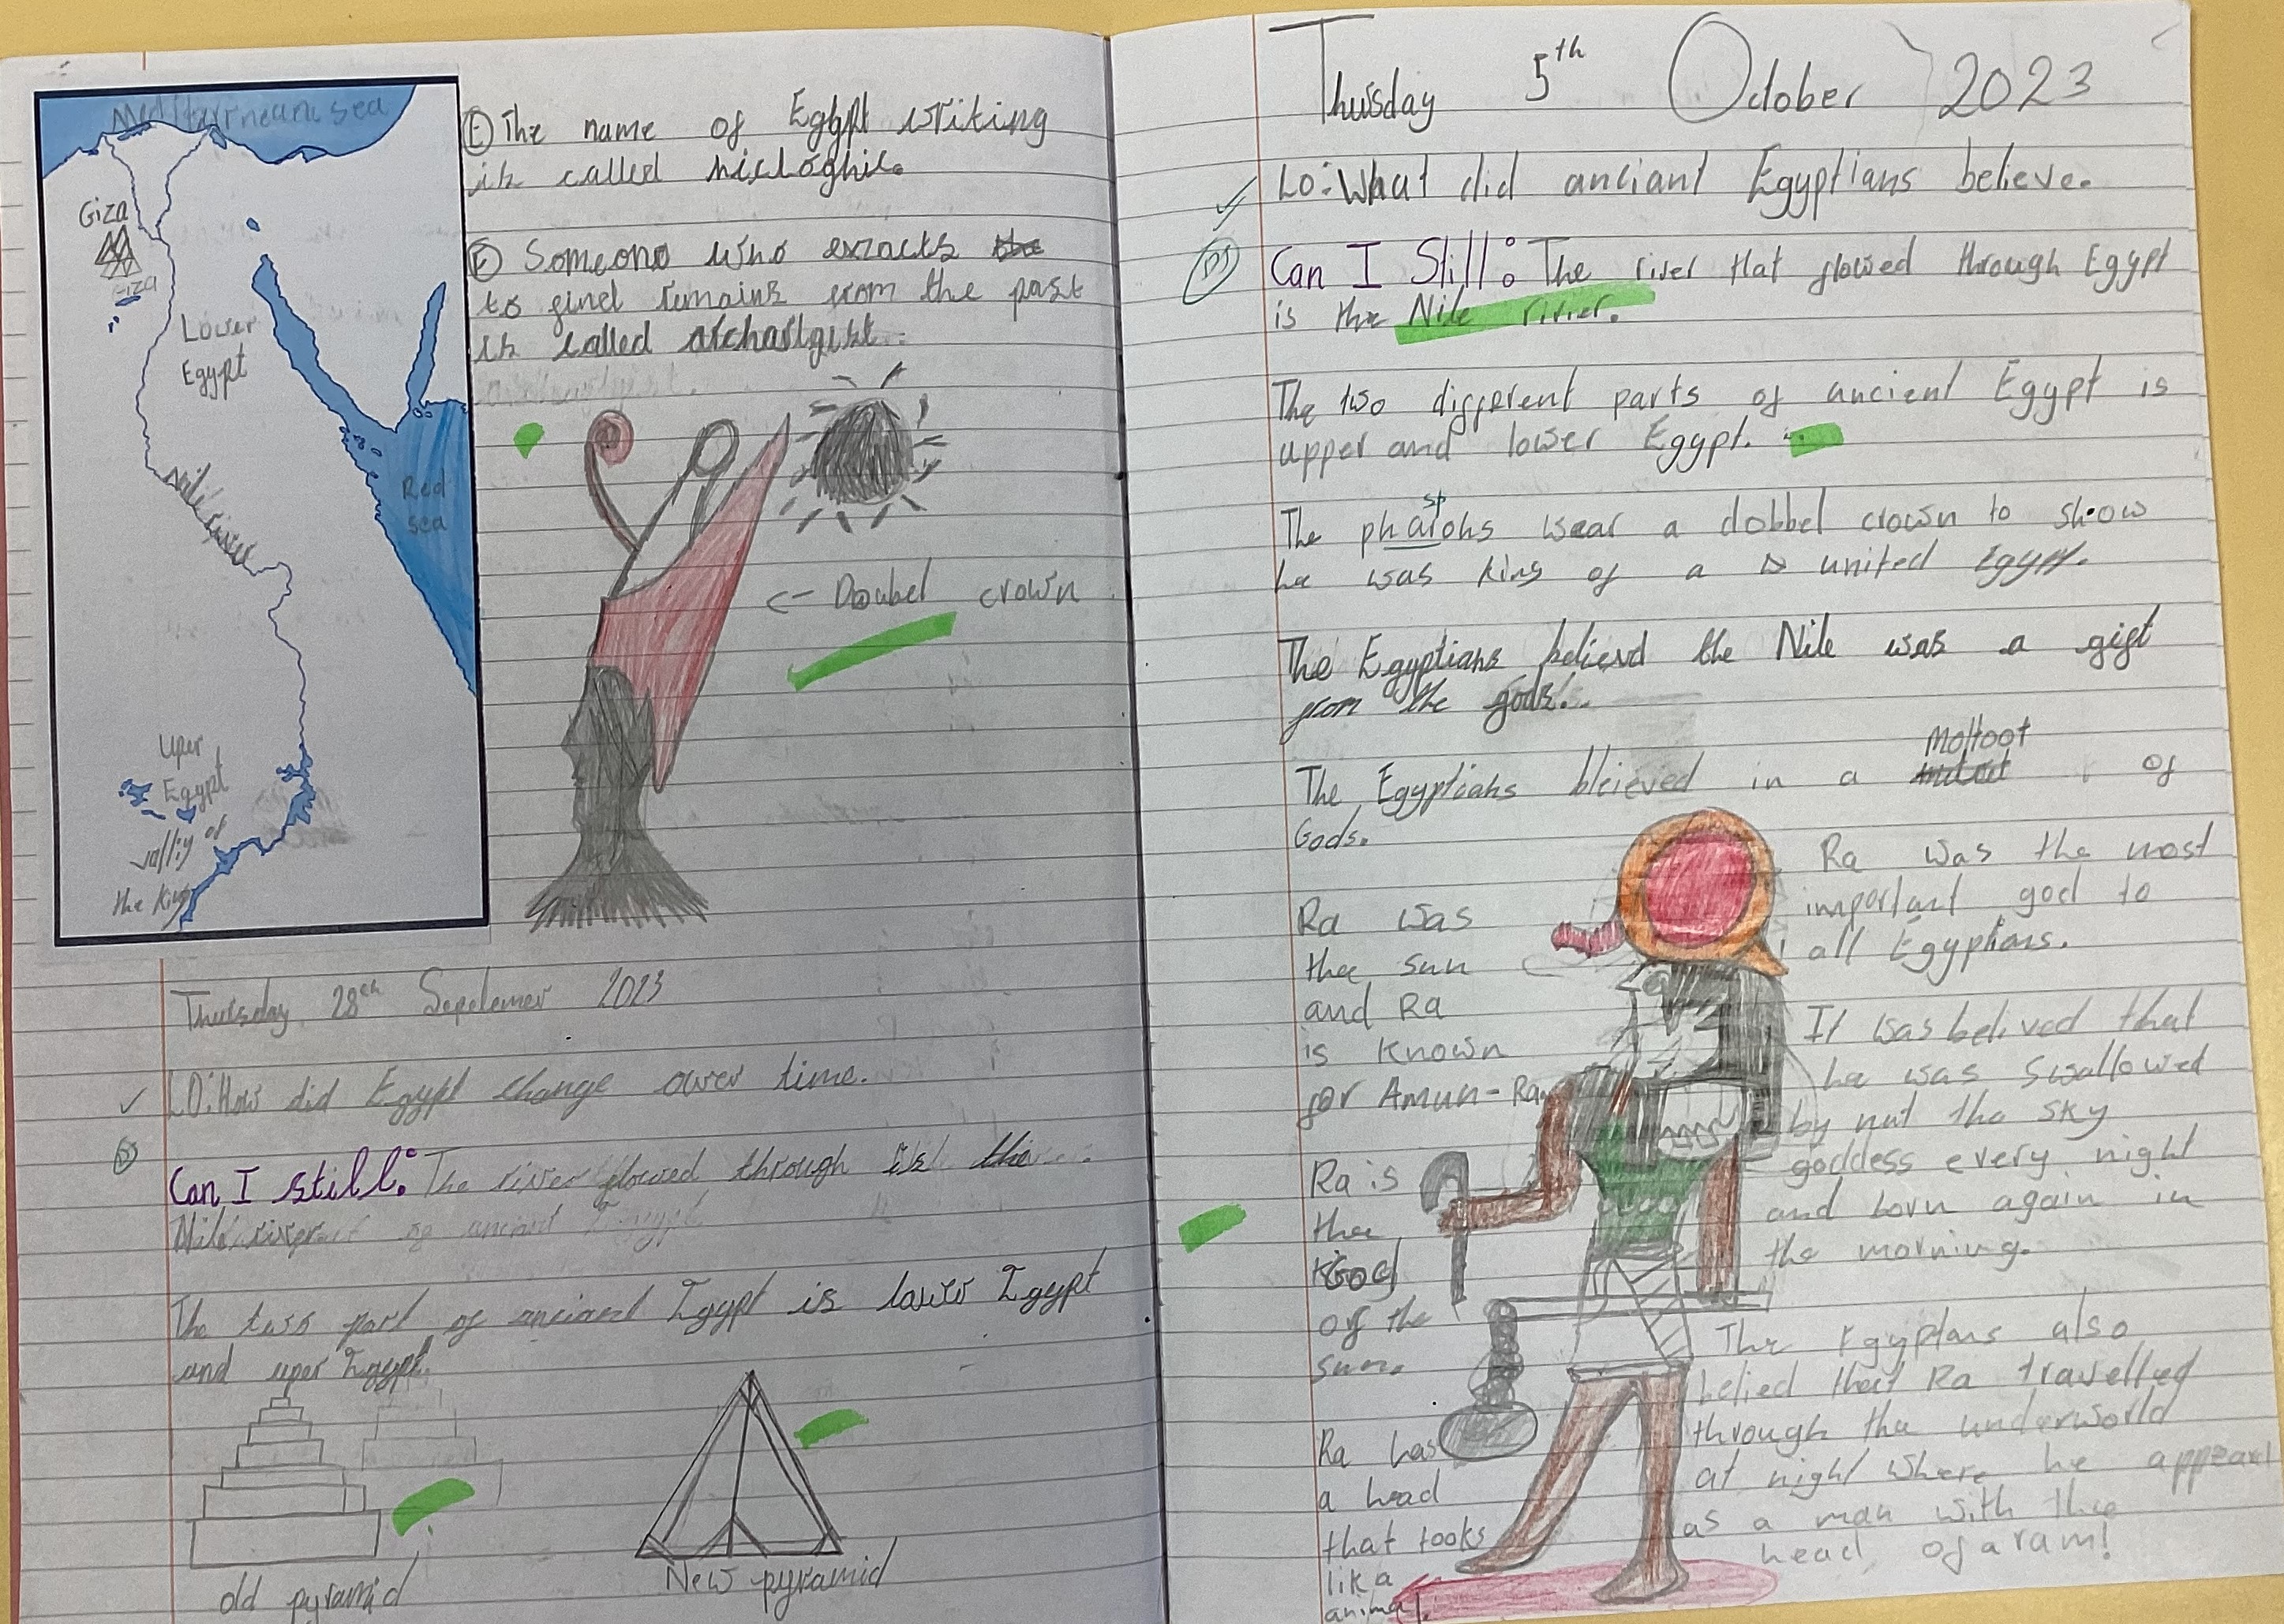 Mediterrnean sea
Giza
Giza
Lower
Egypt
Nile river
Red
sea
Uper
Egypt
vallij of
the King
E The name of Egypt writing
is called hieloghic.
E Someone who exracts the
to find remains from the past
is called archarlgist.
<- Doubel crown
Thursday 28th Septemer 2023
LO: How did Egypt change over time.
Can I still: The river flowed through is the
Nile river
The two part of anciant Egypt is lower Egypt
and uper Egypt.
old pyramid
New pyramid
Thursday 5th October 2023
LO: What did anciant Egyptians believe.
Can I Still: The river that flowed through Egypt
is the Nile river.
The two different parts of ancient Egypt is
upper and lower Egypt.
sp
The pharohs wear a dobbel crown to show
he was king of a united Egypt.
The Egyptians believd the Nile was a gift
from the gods.
Moltoot
The Egyptians bleieved in a of
Gods.
Ra was
the sun
and Ra
is known
for Amun-Ra.
Ra is
the
God
of the
sun.
Ra has
a head
that looks
lik a
animal.
Ra was the most
important god to
all Egyptians.
It was belived that
he was swallowed
by nut the sky
goddess every night
and born again in
the morning.
The Egyptans also
belied that Ra travelled
through the underworld
at night where he appeard
as a man with the
head of a ram!